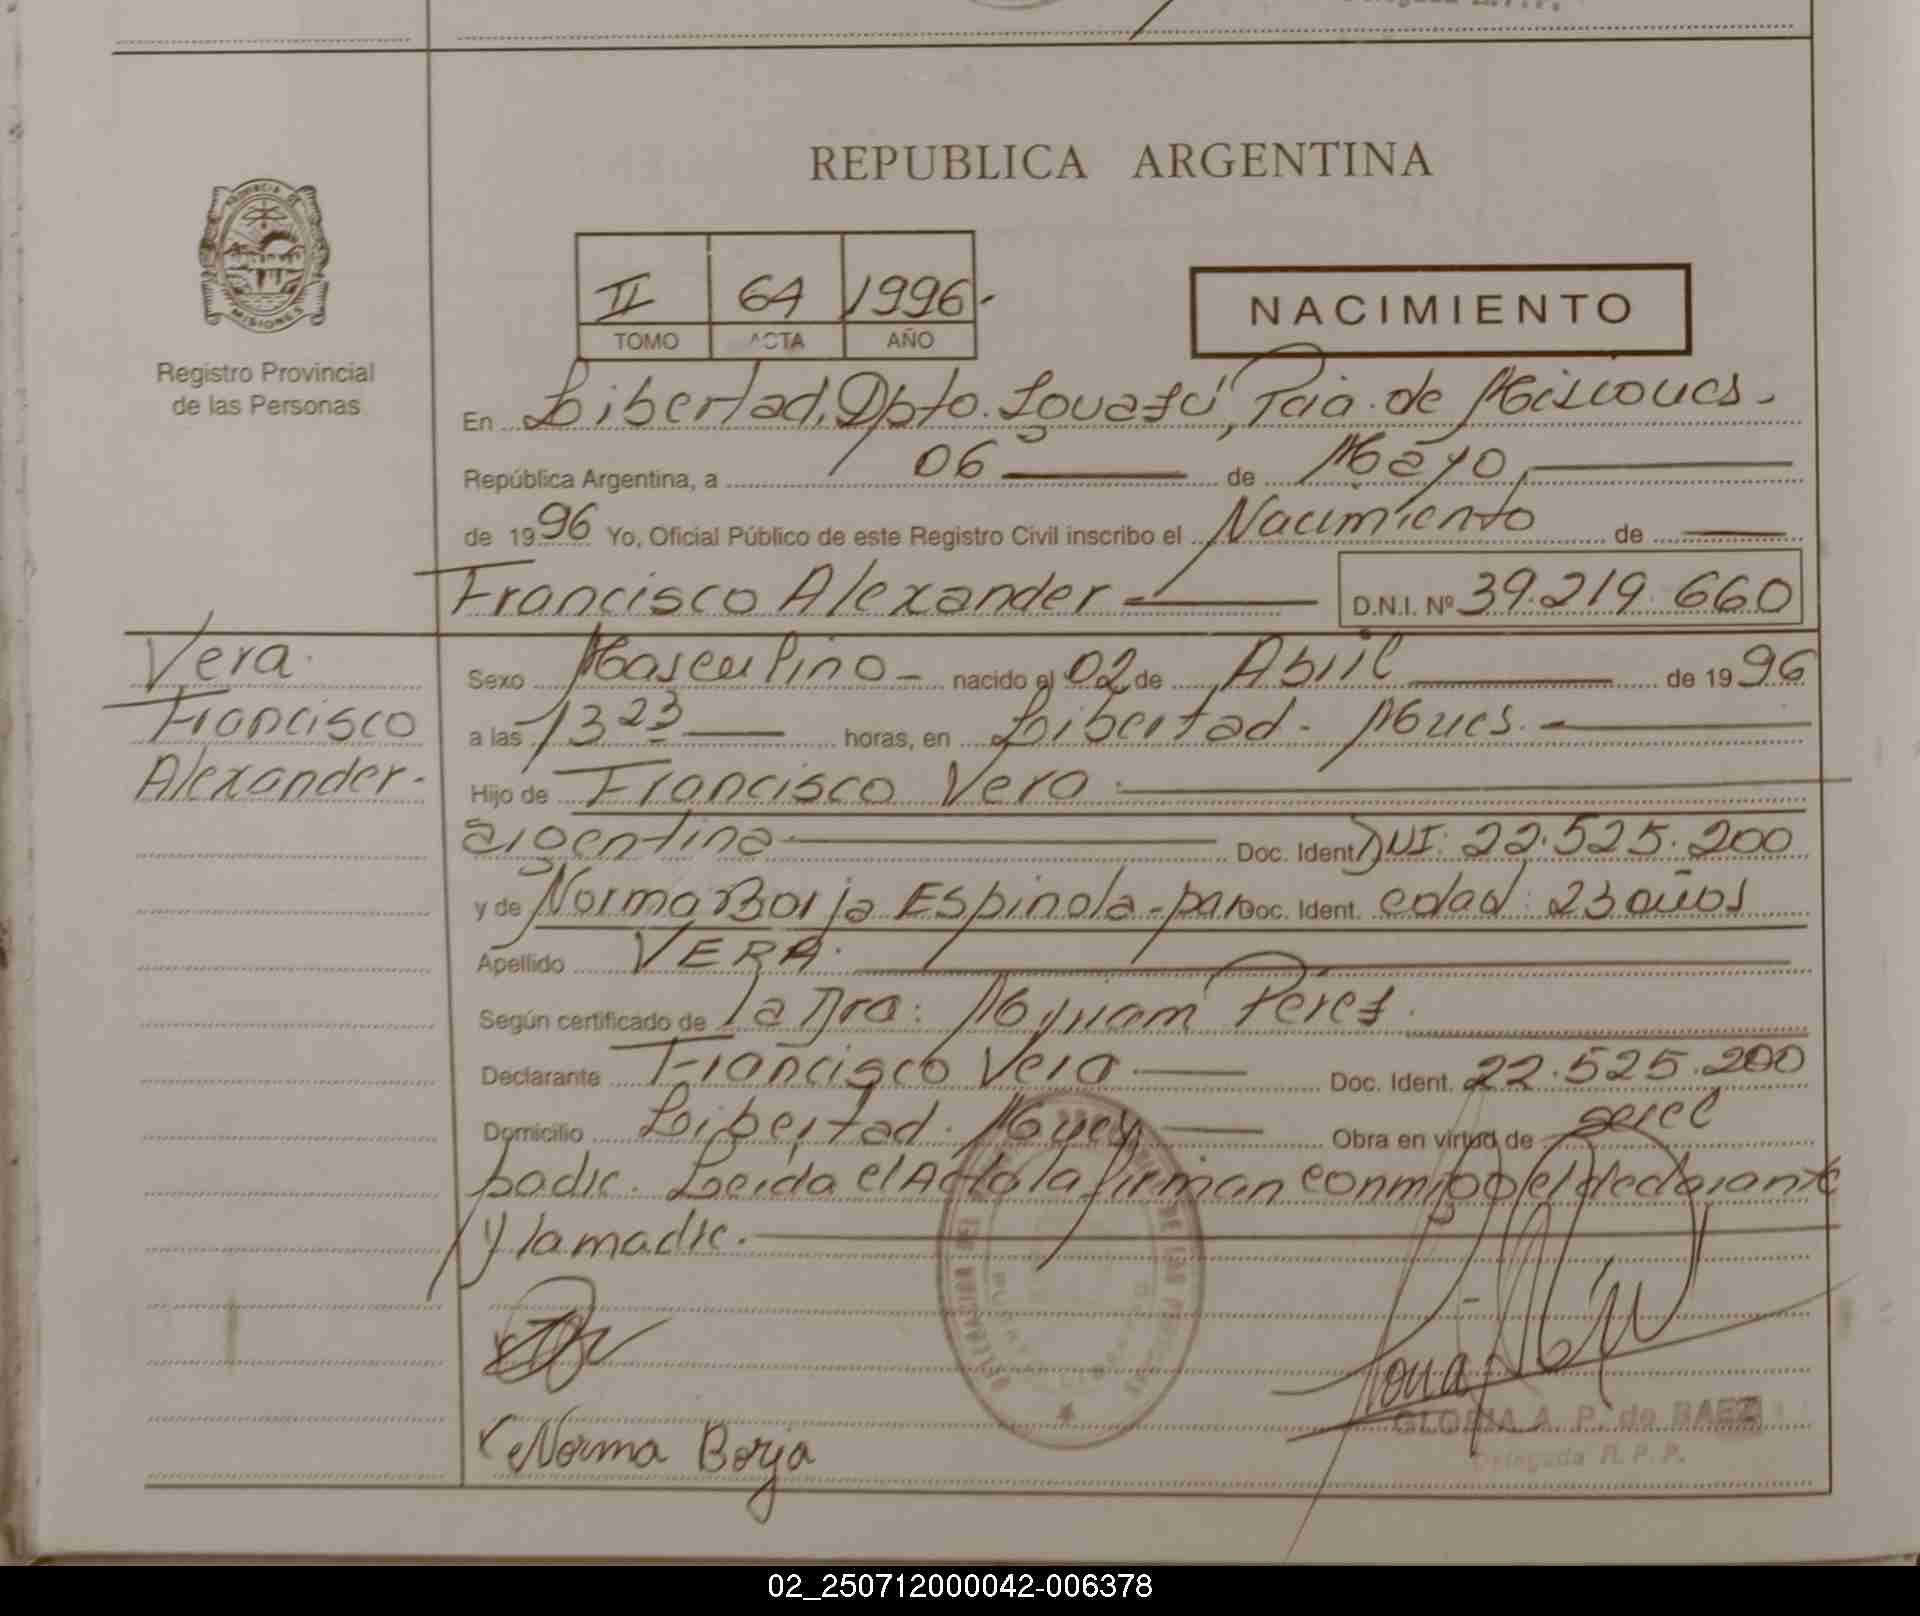 REPUBLICA ARGENTINA
II 64 1996.-
TOMO ACTA AÑO
NACIMIENTO
PROVINCIA DE
MISIONES
Registro Provincial
de las Personas
En Libertad, Dpto. Iguazú, Pcia. de Misiones.
República Argentina, a 06 de Mayo,
de 1996 Yo, Oficial Público de este Registro Civil inscribo el Nacimiento de
Francisco Alexander D.N.I. Nº 39.219.660
Vera.
Francisco
Alexander.
Sexo Masculino nacido el 02 de Abril de 1996
a las 13 23 horas, en Libertad - Mnes.
Hijo de Francisco Vera
argentina Doc. Ident. DNI: 22.525.200
y de Norma Borja Espinola - par Doc. Ident. edad: 23 años
Apellido VERA.
Según certificado de la Dra: Myriam Perez.
Declarante Francisco Vera Doc. Ident. 22.525.200
Domicilio Libertad. Mnes Obra en virtud de ser el
padre. Leida el Acta la firman conmigo el declarante
y la madre.
Norma Borja
GLORIA A. P. de BAEZ
Delegada R.P.P.
02_250712000042-006378